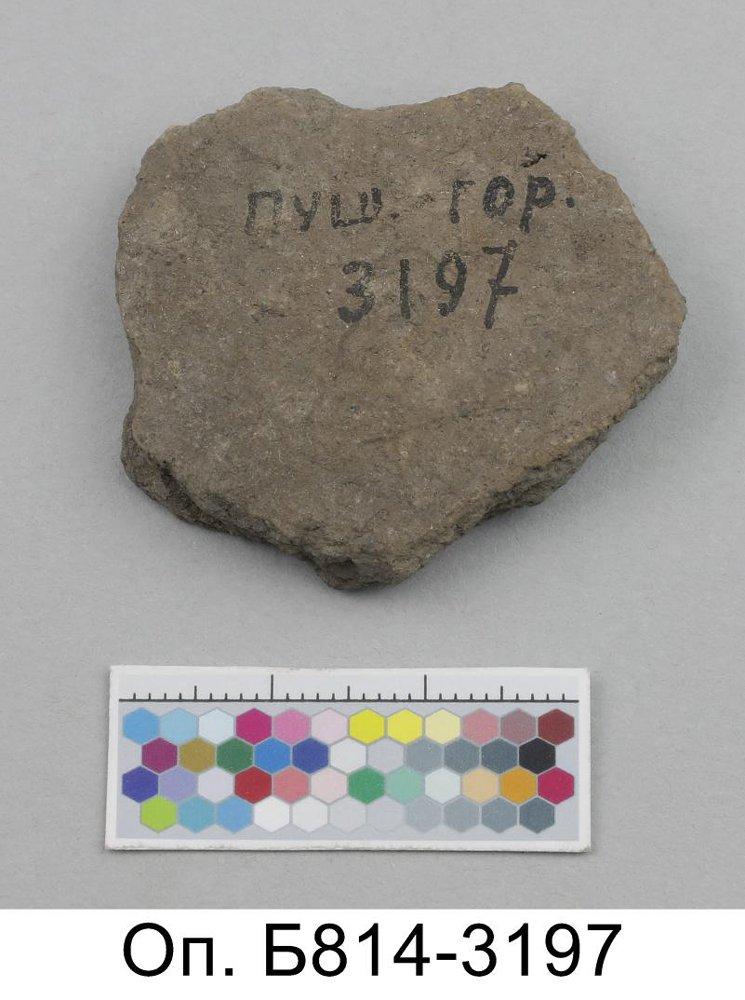 пуш. гор.
3197
Оп. Б814-3197